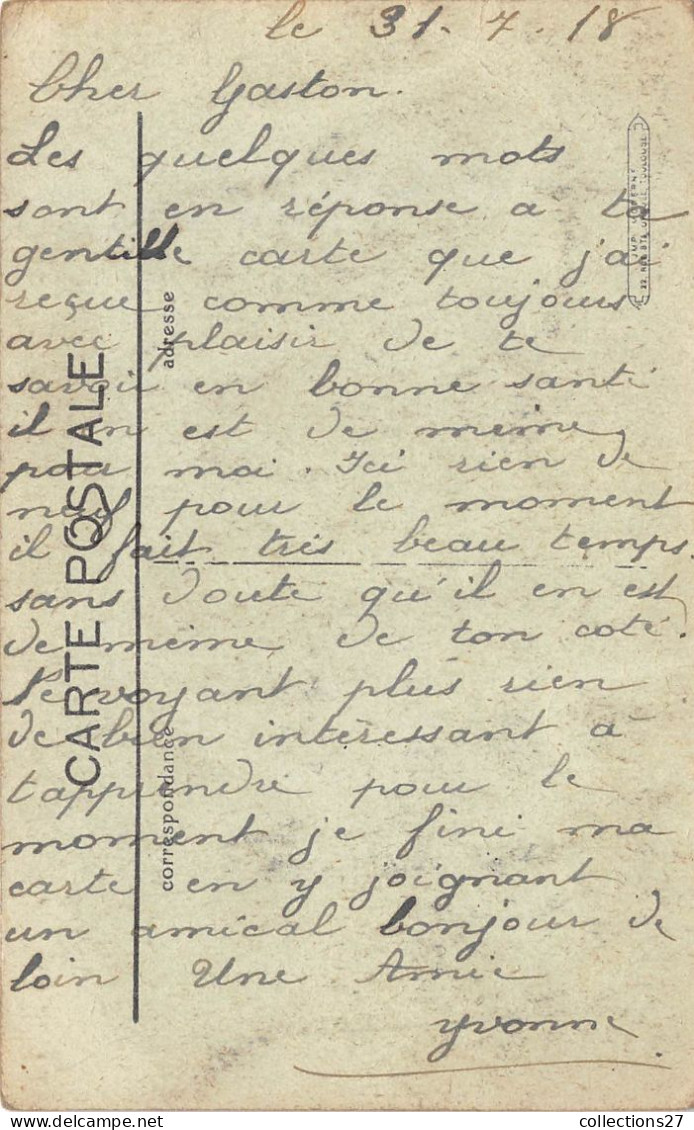 le 31. 7. 18
Cher Gaston.
Les quelques mots
sont en réponse a ta
gentille carte que j'ai
reçue comme toujours
avec plaisir de te
savoir en bonne santé
il en est de meme
pour moi. Ici rien de
neuf pour le moment
il fait très beau temps
sans doute qu'il en est
de même de ton coté.
Ne voyant plus rien
de bien intéressant à
t'apprendre pour le
moment je fini ma
carte en y joignant
un amical bonjour de
loin Une Amie
Yvonne
CARTE POSTALE
adresse
correspondance
collections27